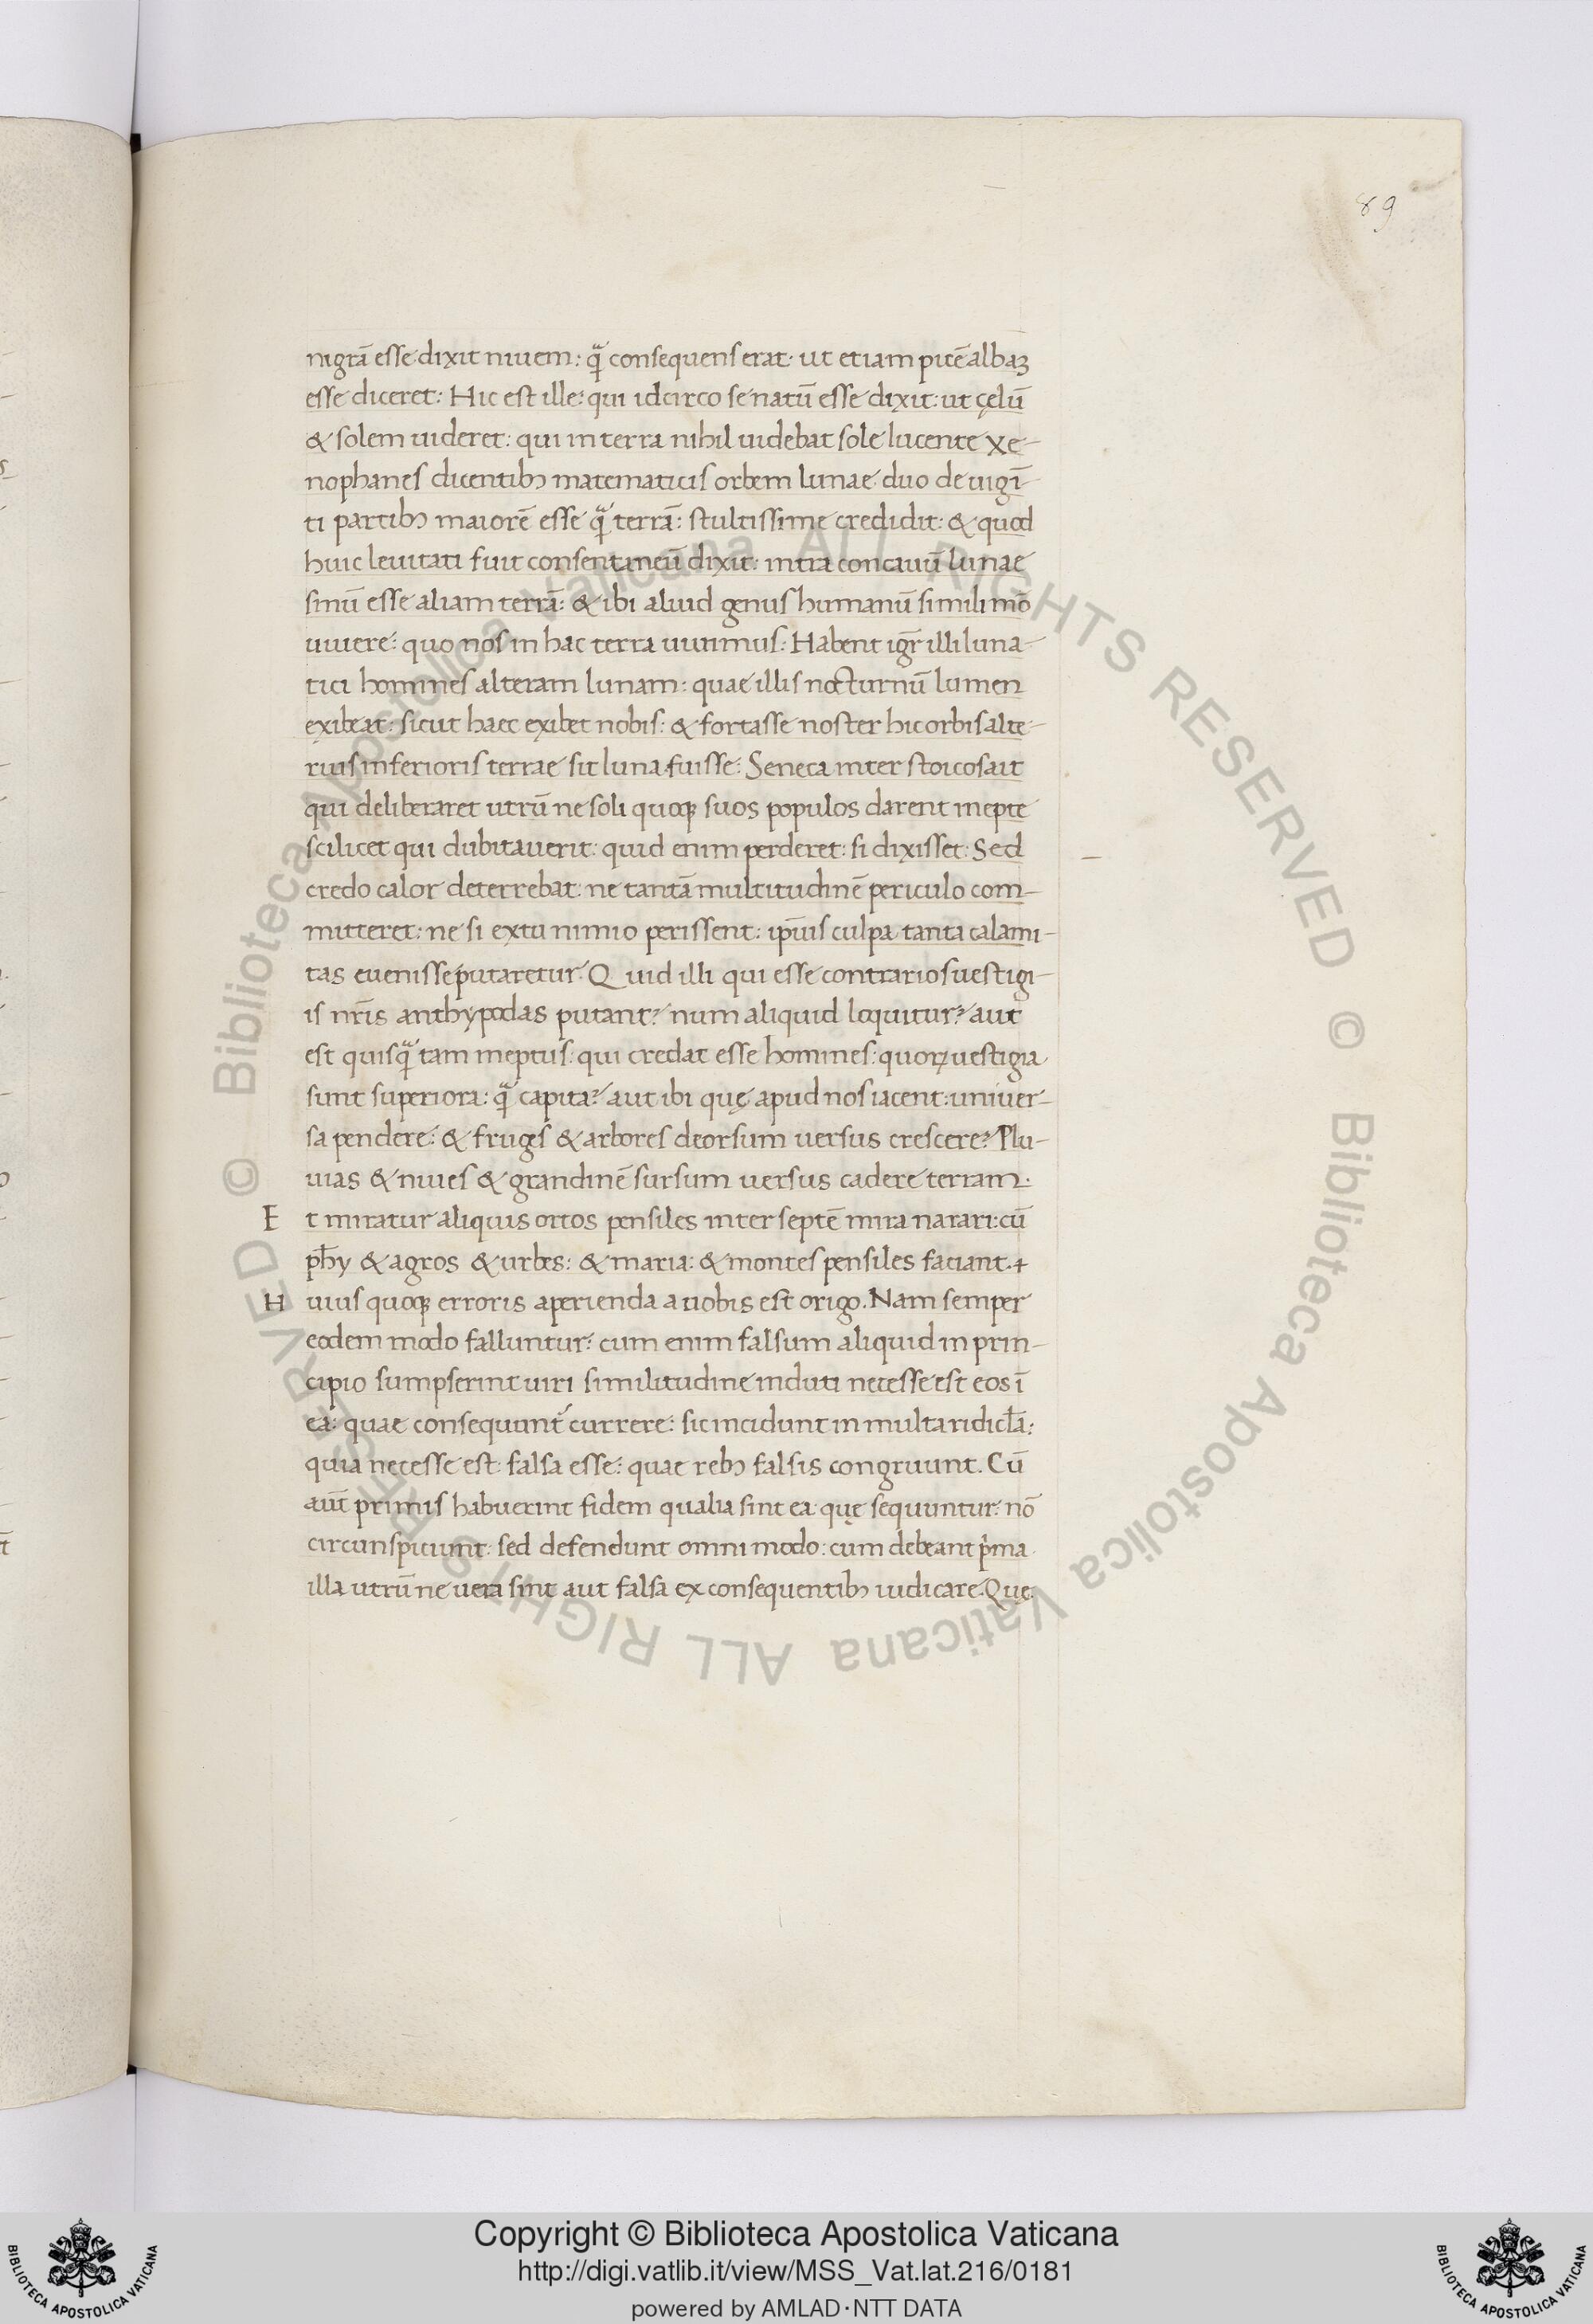 89
nigrā esse dixit niuem: qᷓ consequens erat· ut etiam picē albaꝫ
esse diceret: Hic est ille: qui idcirco se natū esse dixit: ut cęlū
& solem uideret: qui in terra nihil uidebat sole lucente Xe-
nophanes dicentibꝫ matematicis orbem lunae duo de uigī-
ti partibꝫ maiorē esse qᷓ terrā: stultissime credidit: & quod
huic leuitati fuit consentaneū dixit: intra concauū lunae
sinū esse aliam terrā: & ibi aliud genus humanū simili mō
uiuere: quo nos in hac terra uiuimus: Habent igr̄ illi luna-
tici homines alteram lunam: quae illis nocturnū lumen
exibeat: sicut haec exibet nobis: & fortasse noster hic orbis alte-
rius inferioris terrae sit luna fuisse: Seneca inter stoicos ait
qui deliberaret utrū ne soli quoqꝫ suos populos darent inepte
scilicet qui dubitauerit: quid enim perderet: si dixisset: Sed
credo calor deterrebat: ne tantā multitudinē periculo com-
mitteret: ne si extu nimio perissent: ip̄ius culpa tanta calami-
tas euenisse putaretur. Quid illi qui esse contrarios uestigi-
is nr̄is anthypodas putant? num aliquid loquitur? aut
est quisqᷓ tam ineptus: qui credat esse homines: quoꝝ uestigia
sunt superiora: qᷓ capita? aut ibi quę apud nos iacent: uniuer-
sa pendere: & fruges & arbores deorsum uersus crescere? Plu-
uias & niues & grandinē sursum uersus cadere terram.
Et miratur aliquis ortos pensiles inter septē mira narari: cū
ph̄y & agros & urbes: & maria: & montes pensiles faciant.
Huius quoqꝫ erroris aperienda a nobis est origo. Nam semper
eodem modo falluntur: cum enim falsum aliquid in prin-
cipio sumpserint uiri similitudine induti necesse est eos ī
ea: quae consequunt᷑ currere: sic incidunt in multa ridicl̄a:
quia necesse est: falsa esse: quae rebꝫ falsis congruunt. Cū
aūt primis habuerint fidem qualia sint ea quę sequuntur: nō
circunspiciunt: sed defendunt omni modo: cum debeant pͥma
illa utrū ne uera sint aut falsa ex consequentibꝫ iudicare. Quę
© Biblioteca Apostolica Vaticana ALL RIGHTS RESERVED © Biblioteca Apostolica Vaticana ALL RIGHTS RESERVED
Copyright © Biblioteca Apostolica Vaticana
http://digi.vatlib.it/view/MSS_Vat.lat.216/0181
powered by AMLAD·NTT DATA
BIBLIOTECA APOSTOLICA VATICANA
BIBLIOTECA APOSTOLICA VATICANA